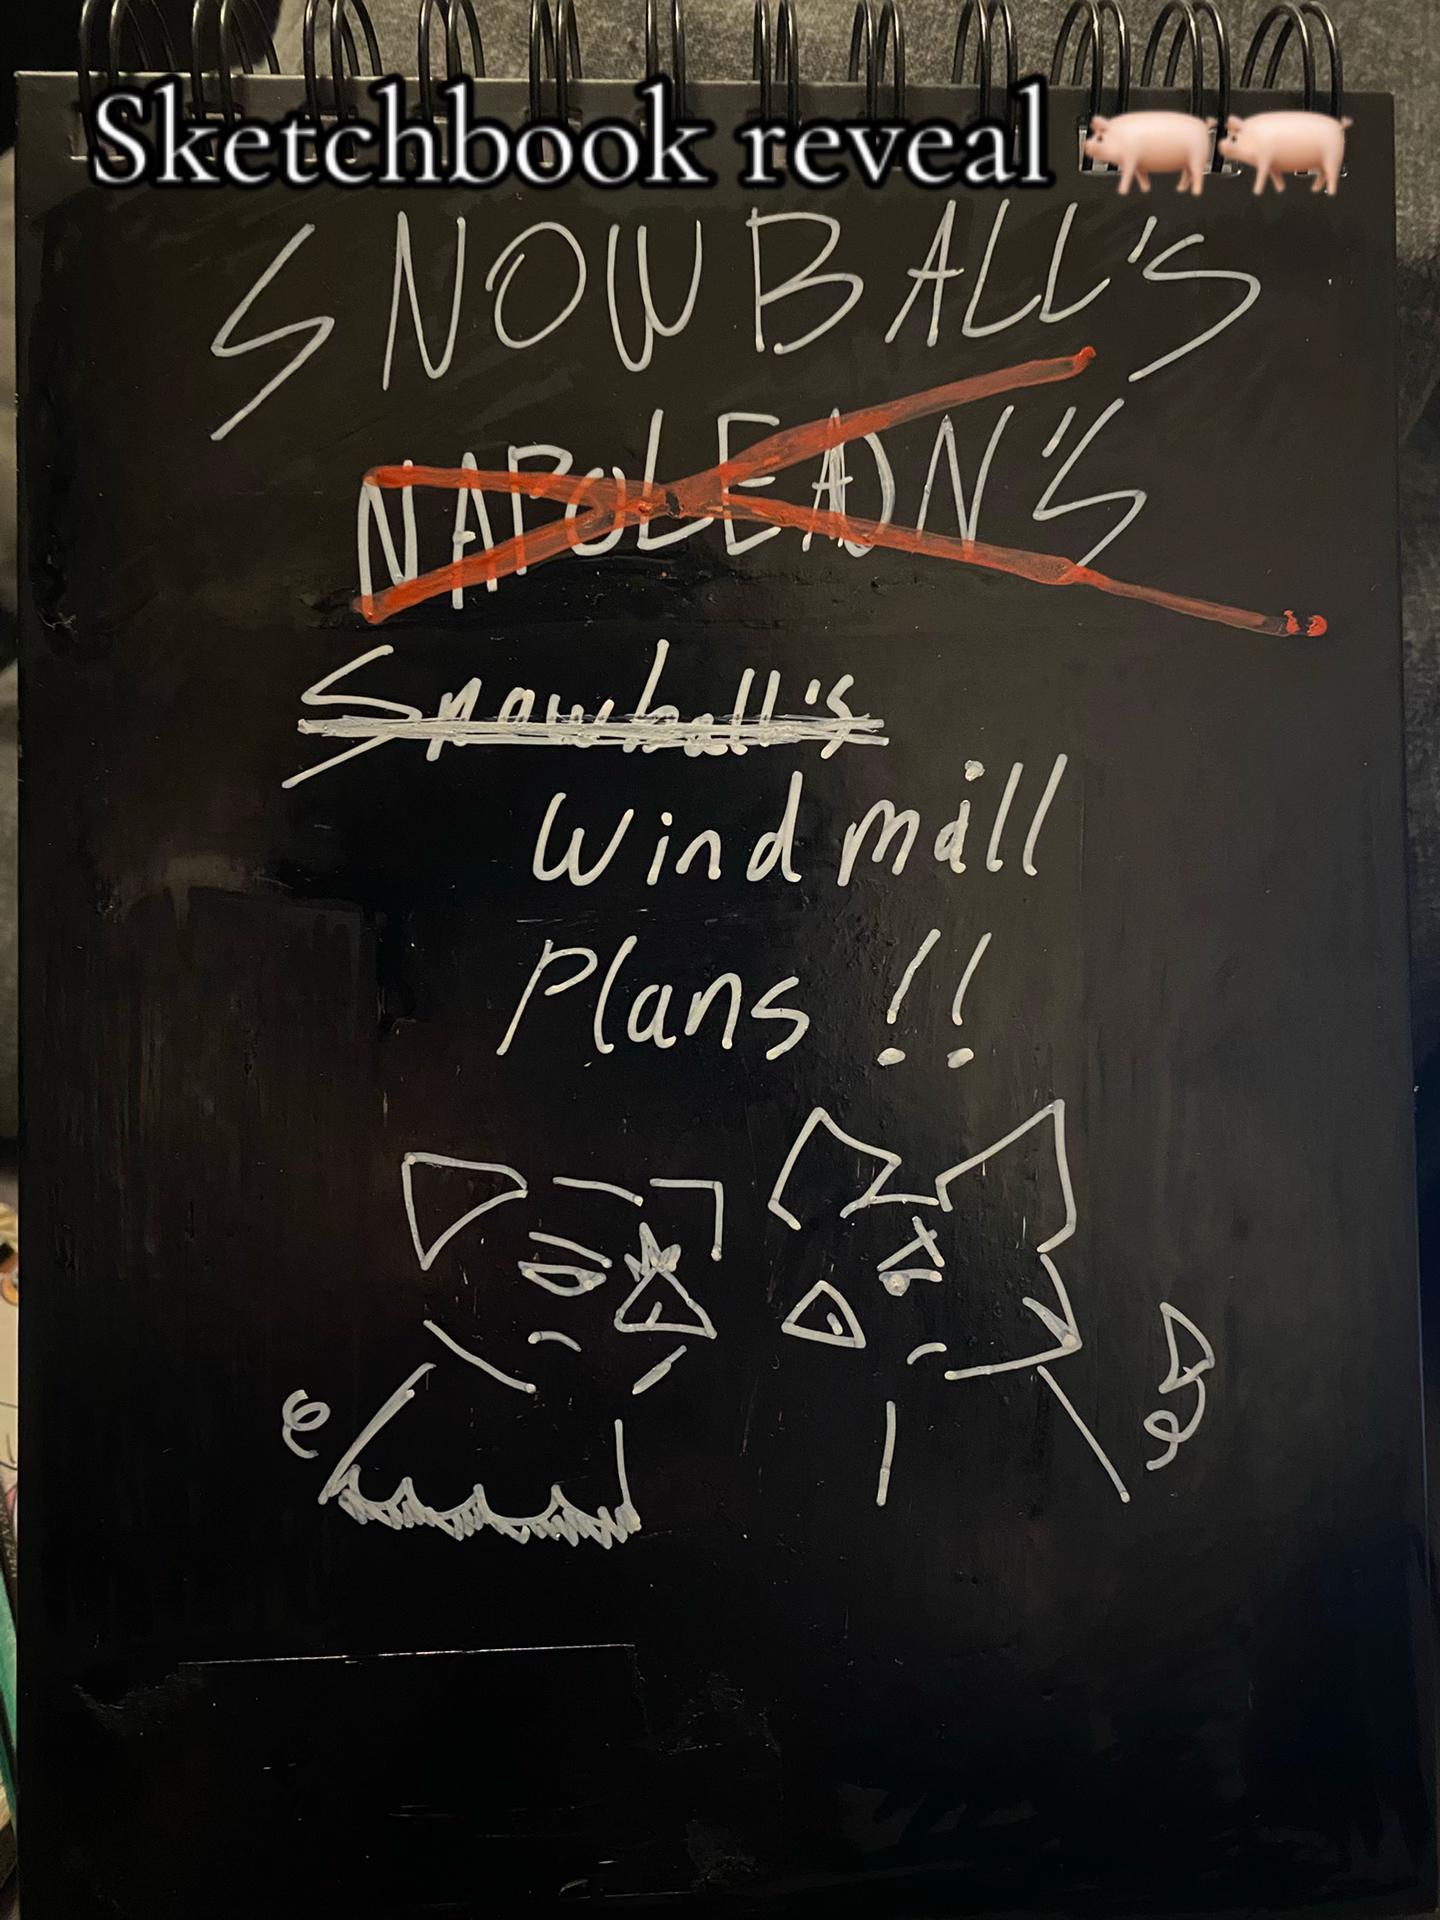 Sketchbook reveal 🐖🐖
SNOWBALL'S
NAPOLEAON'S
Snowball's
Windmill
Plans !!